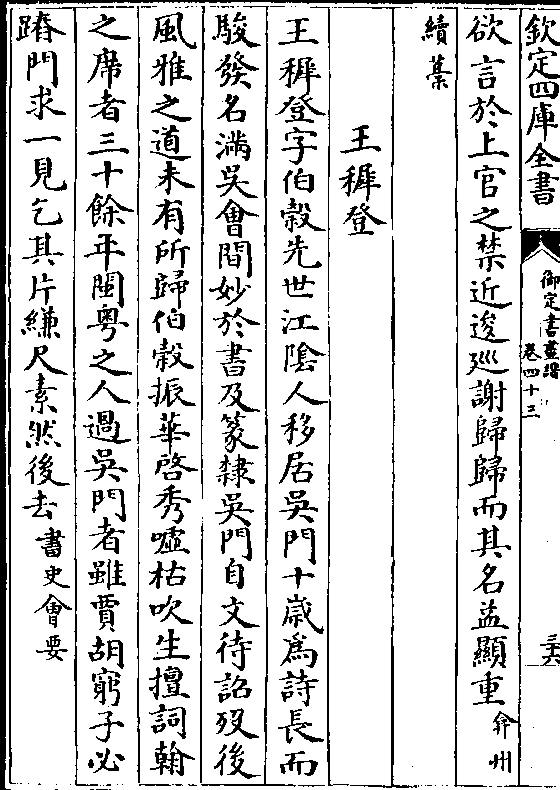 欽定四庫全書
御定書畫譜
卷四十三
三六
欲言於上官之禁近逡巡謝歸歸而其名益顯重弇州
續藁
王穉登
王穉登字伯穀先世江陰人移居吳門十歲為詩長而
駿發名滿吳會間妙於書及篆隸吳門自文待詔歿後
風雅之道未有所歸伯穀振華啓秀噓枯吹生擅詞翰
之席者三十餘年閩粤之人過吳門者雖賈胡窮子必
踏門求一見乞其片縑尺素然後去書史會要